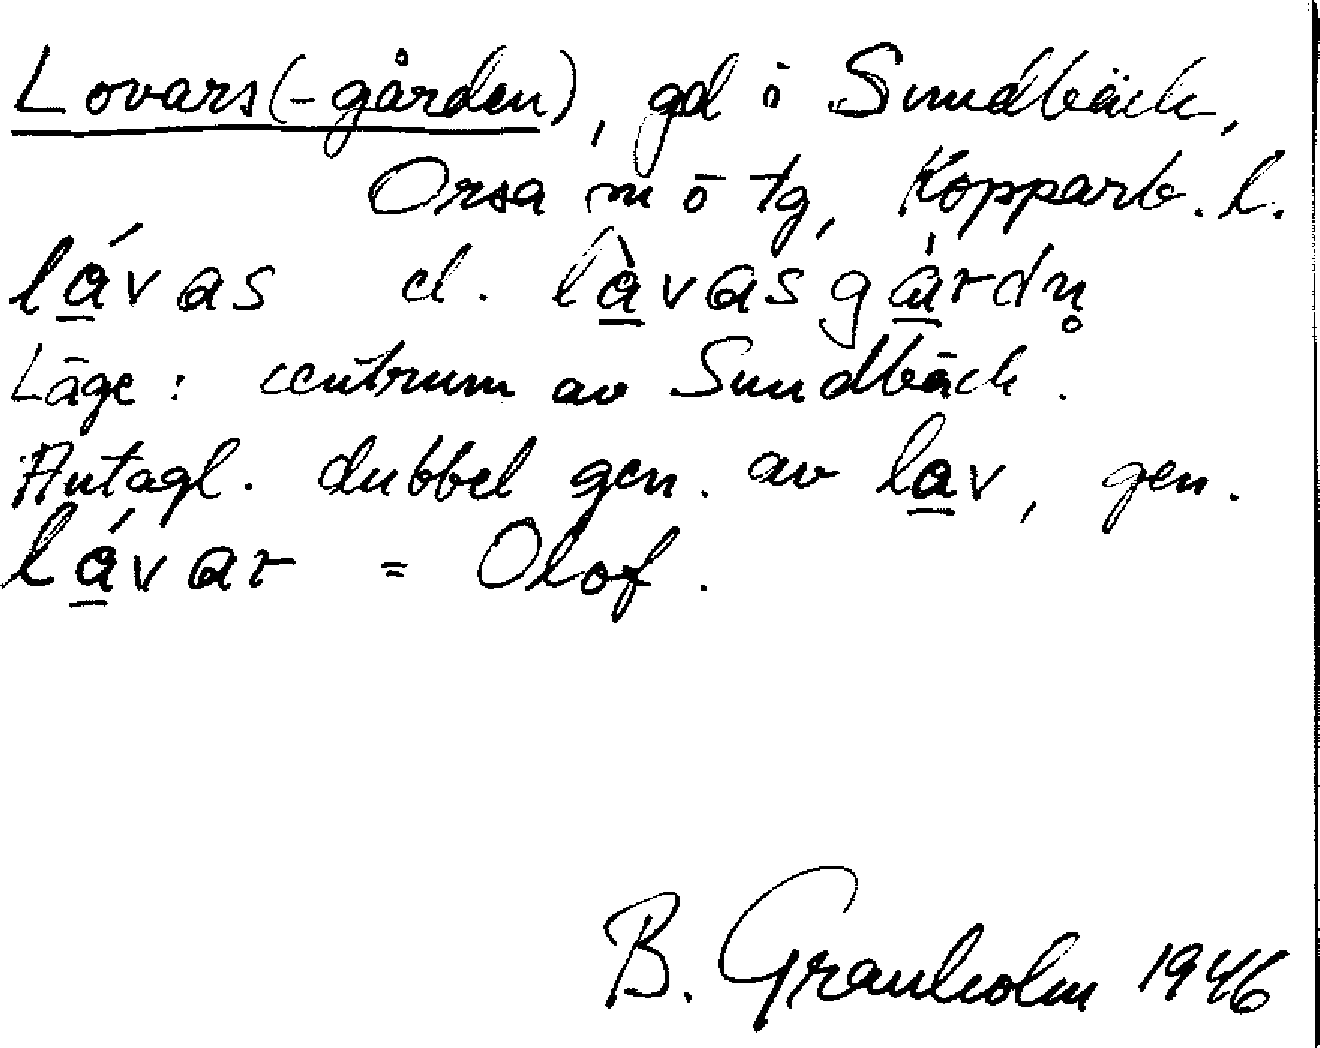 Lovars(-gården), gd i Sundbäck,
Orsa sn o tg, Kopparb. l.
lá̱vas el. là̱vasgá̱rdn̥
Läge: centrum av Sundbäck.
Antagl. dubbel gen. av la̱v, gen.
lá̱var = Olof.
B. Granholm 1946